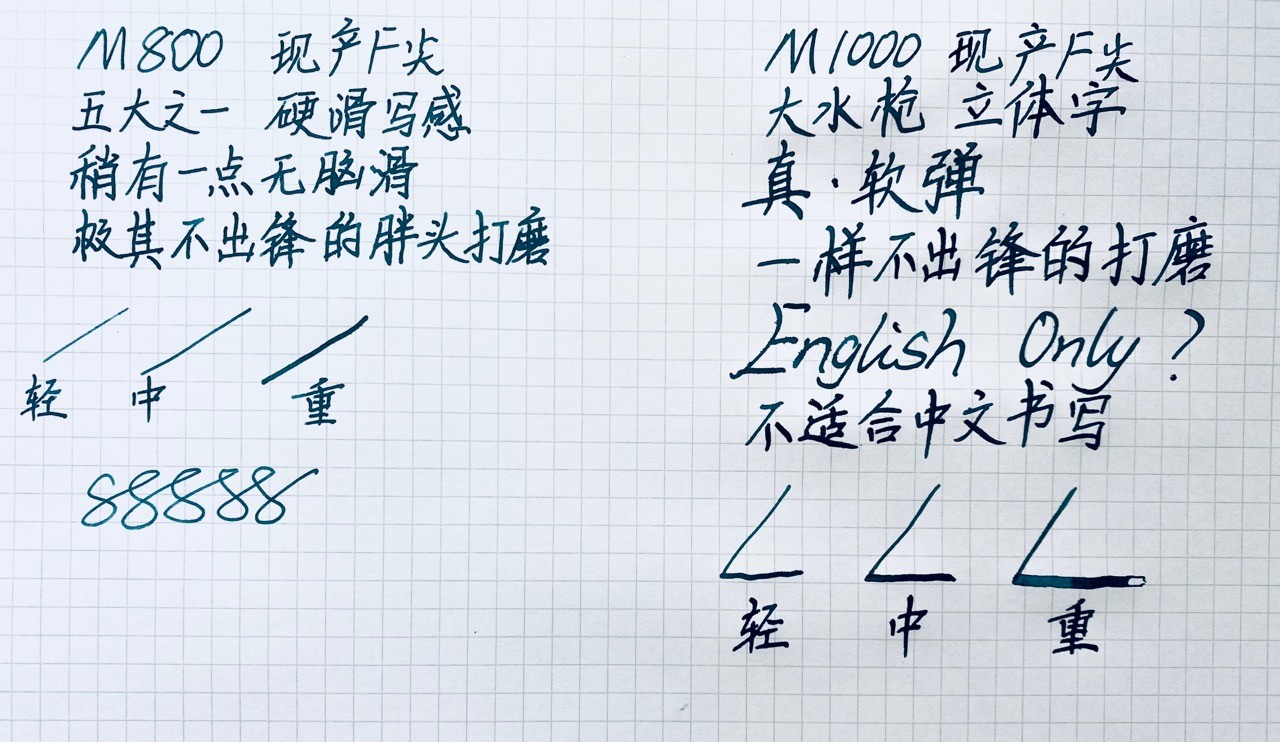 M800 现产F尖
五大之一 硬滑写感
稍有一点无脑滑
极其不出锋的胖头打磨
轻 中 重
88888
M1000 现产F尖
大水枪 立体字
真·软弹
一样不出锋的打磨
English Only?
不适合中文书写
轻 中 重